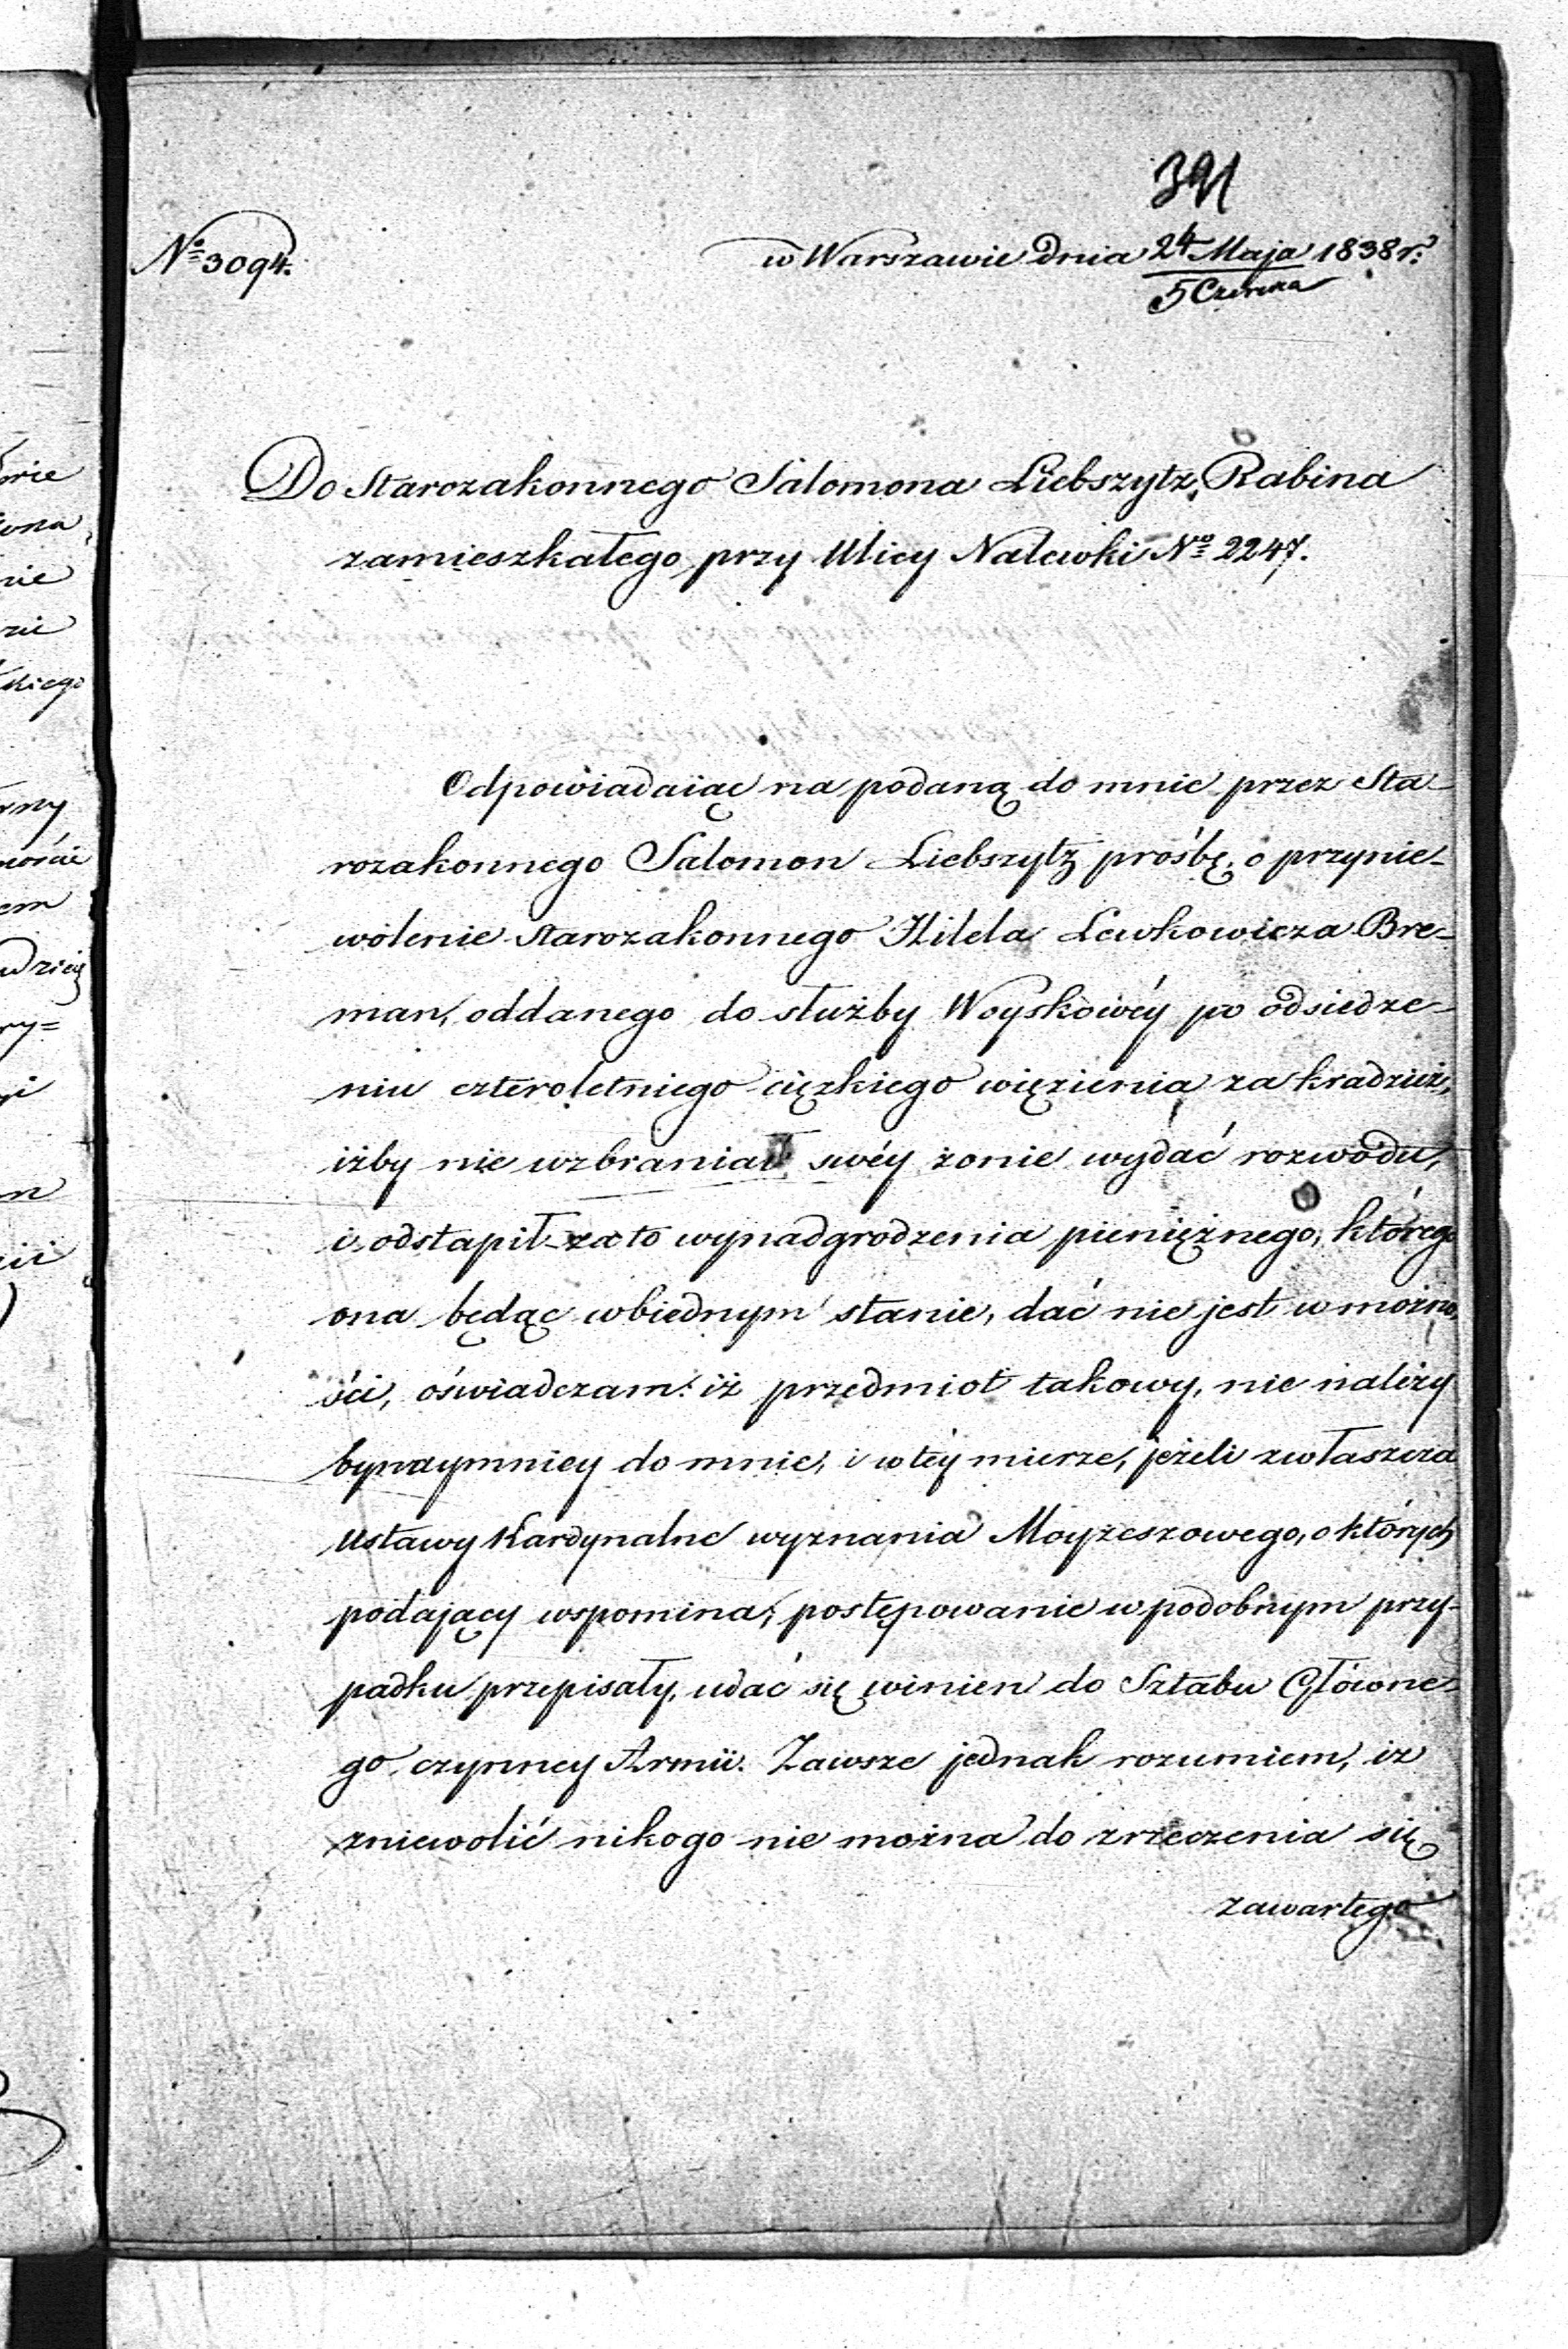 391
№ 3094.
w Warszawie dnia 24 Maja 1838 r.
5 Czerwca
Do Starozakonnego Salomona Liebszytz, Rabina
zamieszkałego przy Ulicy Nalewki № 2247.
Odpowiadaiąc na podaną do mnie przez Sta-
rozakonnego Salomon Liebszytz prośbę, o przynie-
wolenie starozakonnego Hilela Lewkowicza Bre-
man, oddanego do służby Woyskowéy po odsiedze-
niu czteroletniego ciężkiego więzienia za kradzież,
iżby nie wzbraniał swéy żonie wydać rozwodu,
i odstąpił za to wynadgrodzenia pieniężnego, którego
ona będąc w biednym stanie, dać nie jest w możno-
ści, oświadczam: iż przedmiot takowy, nie należy
bynaymniey do mnie, i w téy mierze, jeżeli zwłaszcza
Ustawy Kardynalne wyznania Moyżeszowego, o których
podający wspomina, postępowanie w podobnym przy-
padku przepisały, udać się winien do Sztabu Główne-
go czynney Armii. Zawsze jednak rozumiem, iż
zniewolić nikogo nie można do zrzeczenia się
zawartego